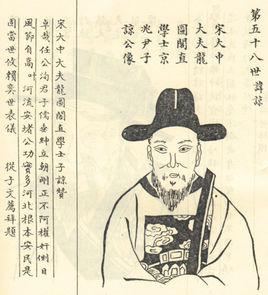 第五十八世 諱諒
宋大中
大夫龍
圖閣直
學士京
兆尹子
諒公像
宋大中大夫龍圖閣直學士子諒贊
卓哉任公洵君子儒垂紳立朝剛正不阿權奸側目
風節自高叶河流安堵公功實多河北根本安民是
圖當世攸賴奕世表儀 從子文薦拜題